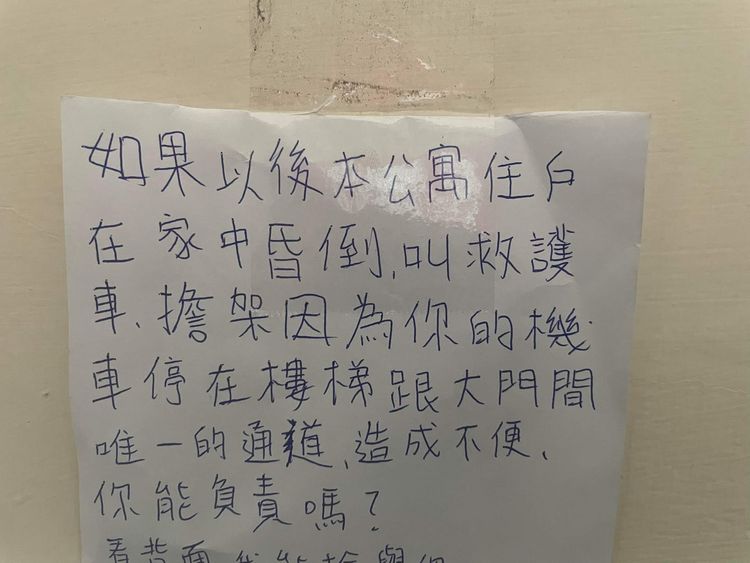 如果以後本公寓住戶
在家中昏倒,叫救護
車、擔架因為你的機
車停在樓梯跟大門間
唯一的通道、造成不便、
你能負責嗎?
看背面